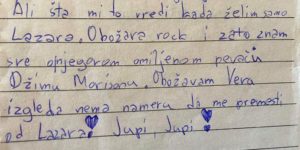 Ali šta mi to vredi kada želim samo
Lazara. Obožava rock i zato znam
sve o njegovom omiljenom pevaču
Džimu Morisonu. Obožavam Vera
izgleda nema nameru da me premesti
od Lazara! Jupi, Jupi!